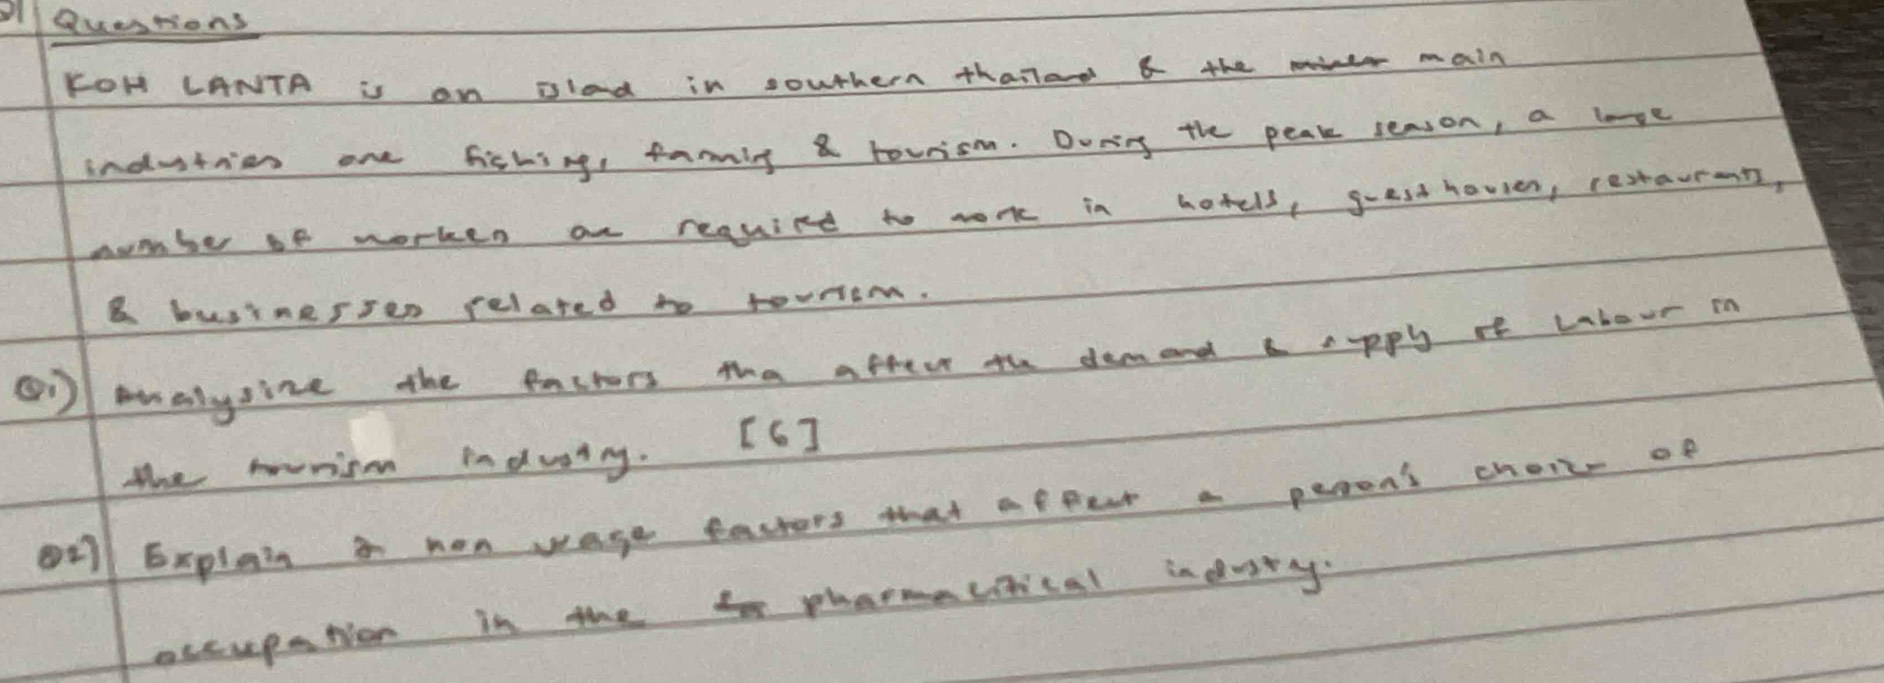 Questions
KOH LANTA is an Island in southern thailand & the main
industries are fishing, farming & tourism. During the peak season, a large
number of workers are required to work in hotels, guest houses, restaurants,
& businesses related to tourism.
Q1) Analysize the factors tha affect the demand & supply of Labour in
the tourism industry. [6]
Q2) Explain 2 non wage factors that affect a person's choice of
occupation in the pharmacitical industry.